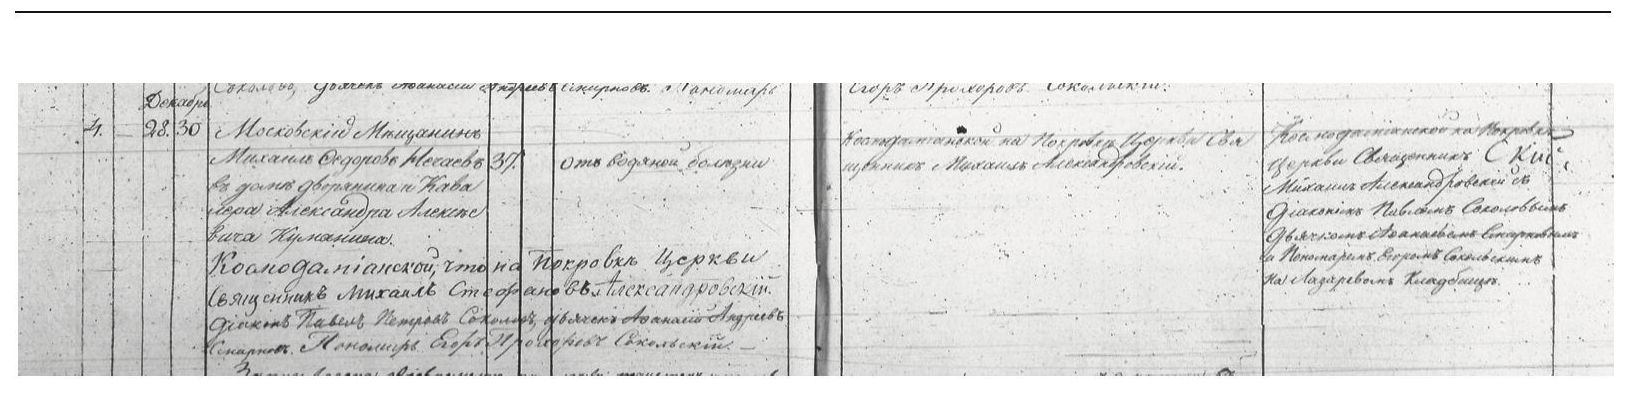 Соколовъ, Дьячекъ Афанасій Андреевъ Смирновъ. Пономарь
Егоръ Прохоровъ Сокольскій.
Декабрь
4. 28. 30 Московскій Мѣщанинъ
Михаилъ Ѳедоровъ Нечаевъ 37. отъ водяной болѣзни
въ домѣ дворянина и Кава
лера Александра Алексѣе
вича Куманина.
Космодаміанской, что на Покровкѣ Церкви
Священникъ Михаилъ Стефановъ Александровскій.
Діаконъ Павелъ Петровъ Соколовъ, дьячекъ Афанасій Андреевъ
Смирновъ. Пономарь Егоръ Прохоровъ Сокольскій. —
Космодаміанской на Покровкѣ Церкви Свя
щенникъ Михаилъ Александровскій.
Космодаміанской на Покровкѣ
Церкви Священникъ
Михаилъ Александровскій съ
Діакономъ Павломъ Соколовымъ
Дьячкомъ Афанасіемъ Смирновымъ
и Пономаремъ Егоромъ Сокольскимъ
на Лазаревомъ Кладбищѣ.